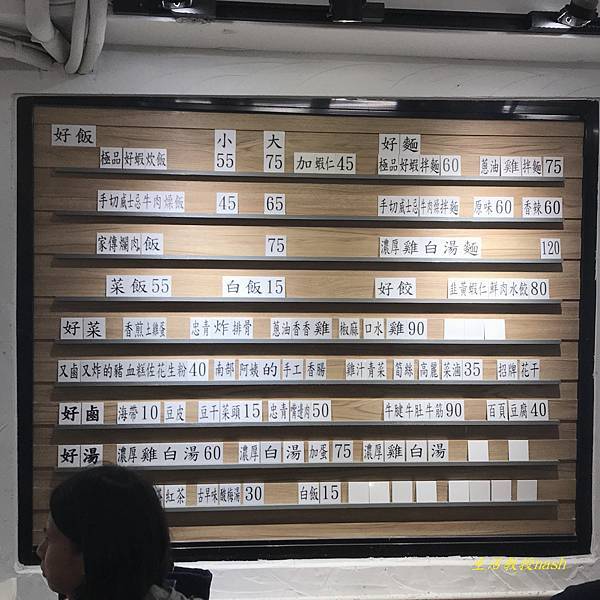 好飯 小 大 好麵
極品好蝦炊飯 55 75 加蝦仁45 極品好蝦拌麵60 蔥油雞拌麵75
手切威士忌牛肉燥飯 45 65 手切威士忌牛肉燥拌麵 原味60 香辣60
家傳爌肉飯 75 濃厚雞白湯麵 120
菜飯55 白飯15 好餃 韭黃蝦仁鮮肉水餃80
好菜 香煎土雞蛋 忠青炸排骨 蔥油香香雞 椒麻口水雞90
又鹵又炸的豬血糕佐花生粉40 南部阿姨的手工香腸 雞汁青菜 筍絲 高麗菜滷35 招牌花干
好鹵 海帶10 豆皮 豆干菜頭15 忠青嘴邊肉50 牛腱牛肚牛筋90 百頁豆腐40
好湯 濃厚雞白湯60 濃厚白湯加蛋75 濃厚雞白湯
紅茶 古早味酸梅湯30 白飯15
生活教授nash